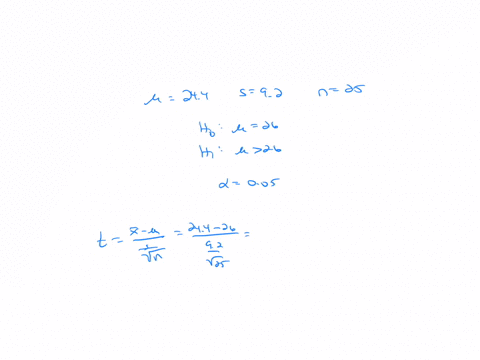 μ = 24.4 s = 9.2 n = 25
H₀: μ = 26
H₁: μ > 26
α = 0.05
t = (x̄ - μ)/(s/√n) = (24.4 - 26)/(9.2/√25) =